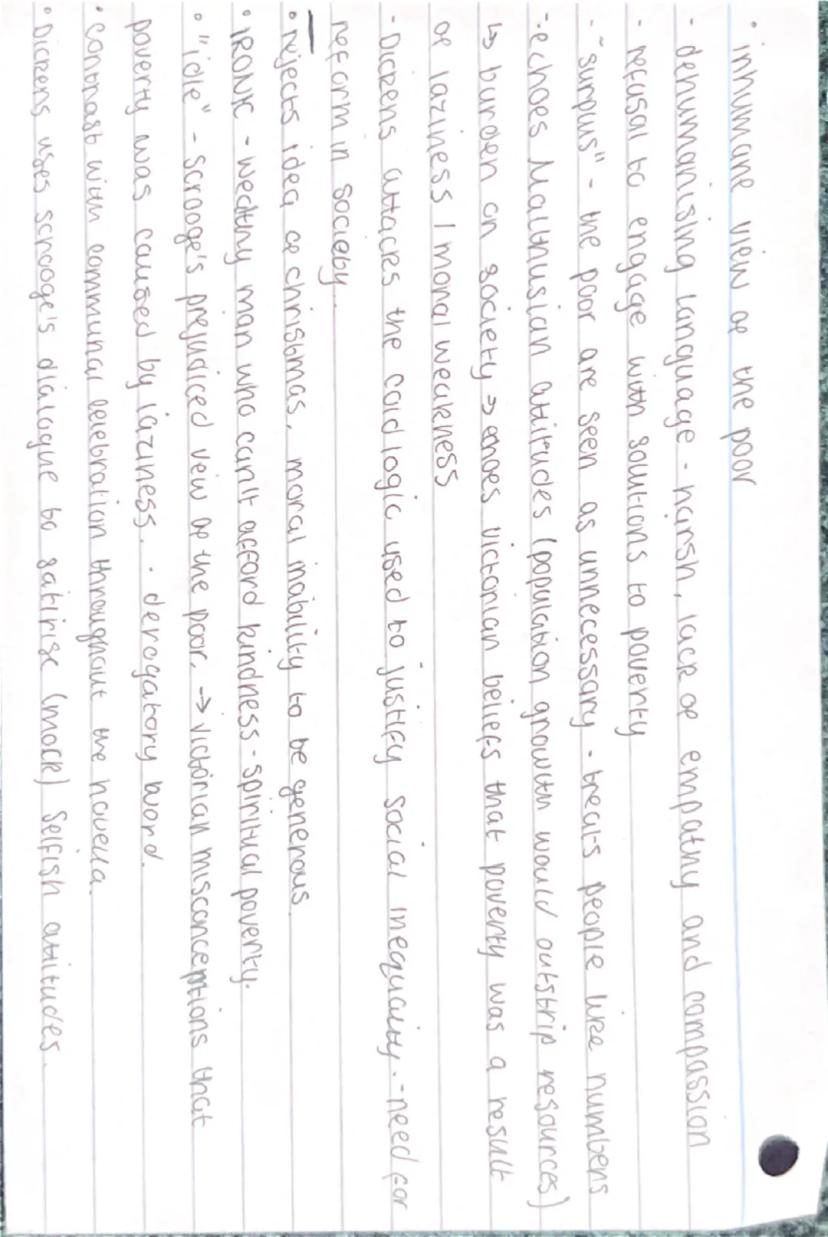 • inhumane view of the poor
- dehumanising language - harsh, lack of empathy and compassion
- refusal to engage with solutions to poverty
- "surpus" - the poor are seen as unnecessary - treats people like numbers
- echoes Malthusian attitudes (population growth would outstrip resources)
↳ burden on society → echoes victorian beliefs that poverty was a result
of laziness / moral weakness
- Dickens attacks the cold logic used to justify social inequality. - need for
reform in society.
• rejects idea of christmas, moral inability to be generous.
• IRONIC - wealthy man who can't afford kindness - spiritual poverty.
• "idle" - scrooge's prejudiced veiw of the poor. → victorian misconceptions that
poverty was caused by laziness. • derogatory word.
• contrast with communal celebration throughout the novella.
• Dickens uses scrooge's dialogue to satirise (mock) selfish attitudes.